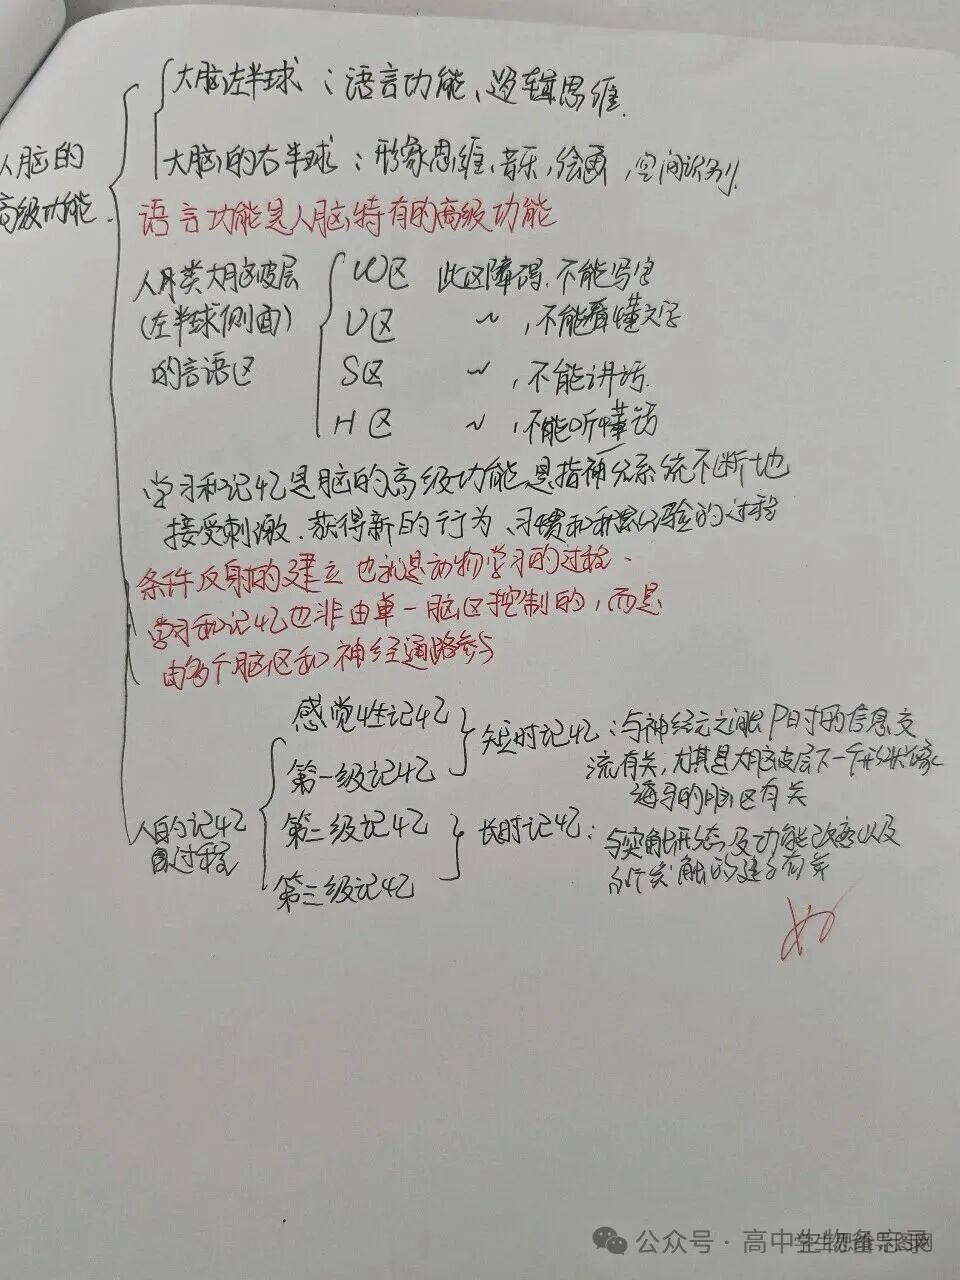 人脑的
高级功能
大脑左半球：语言功能、逻辑思维.
大脑的右半球：形象思维、音乐，绘画，空间识别.
语言功能是人脑特有的高级功能
人类大脑皮层
(左半球侧面)
的言语区
W区 此区障碍.不能写字
V区 ～，不能看懂文字
S区 ～，不能讲话.
H区 ～，不能听懂话
学习和记忆是脑的高级功能是指神经系统不断地
接受刺激.获得新的行为、习惯和积累经验的过程
条件反射的建立也就是动物学习的过程.
学习和记忆也非由单一脑区控制的，而是
由多个脑区和神经通路参与
人的记忆
过程
感觉性记忆
第一级记忆
第二级记忆
第三级记忆
短时记忆：与神经元之间即时的信息交
流有关，尤其是大脑皮层下一个形状像
海马的脑区有关
长时记忆：与突触形态及功能改变以及
新突触的建立有关
公众号·高中生物备忘录